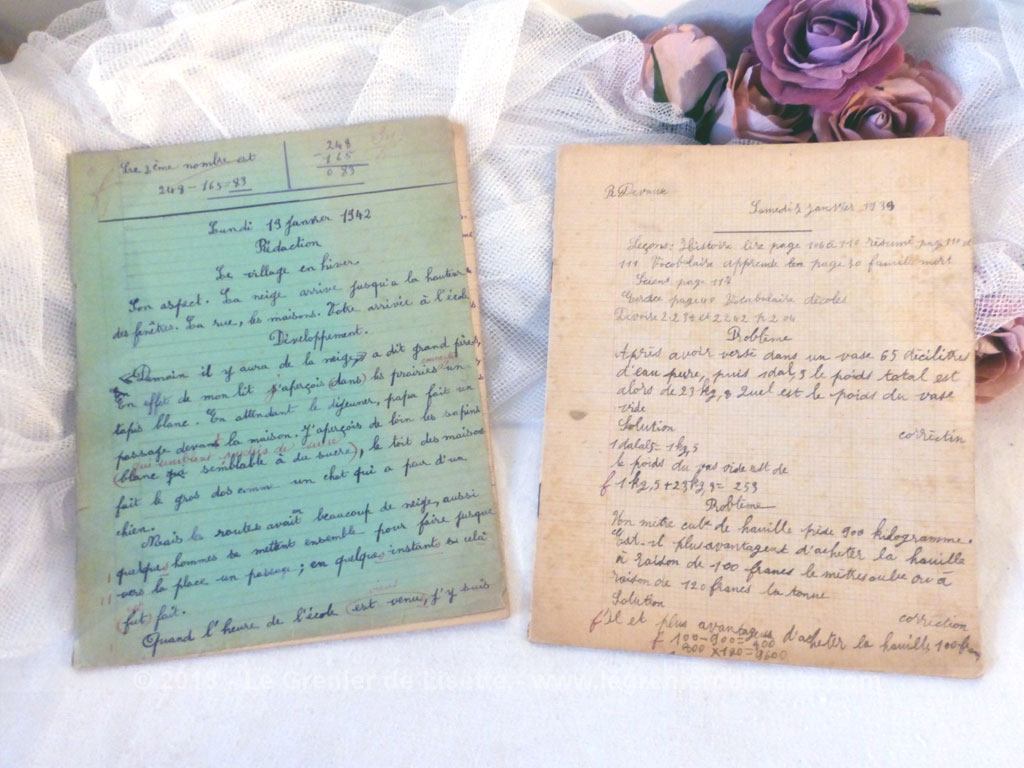 Le 2ème nombre est
248 - 165 = 83
248
- 165
0 83
Lundi 19 Janvier 1942
Rédaction
Le village en hiver.
Son aspect. La neige arrive jusqu'a la hauteur
des fenêtres. La rue, les maisons. Votre arrivée à l'école
Développement.
Demain il y aura de la neige, a dit grand père,
En effet de mon lit j'aperçois (dans) les prairies un
tapis blanc. En attendant le déjeuner, papa fait un
passage devant la maison. J'aperçois de loin les sapins
(blanc semblable à du sucre), le toit des maisons
fait le gros dos comm un chat qui a peur d'un
chien.
Mais les routes avait beaucoup de neige, aussi
quelques hommes se mettent ensemble pour faire jusque
vers la place un passage ; en quelques instants cela
(fut) fait.
Quand l'heure de l'école (est venu), j'y suis
R Devaux
Samedi 7 janvier 1939
Leçons: Histoire lire page 106 à 110 résumé page 110 et
111 Vocabulaire apprendre page 30 famill mort
Scienc page 117
Vocabulaire décoles
Devoirs 2239 et 2242 p 204
Problème
Après avoir versé dans un vase 65 décilitres
d'eau pure, puis 1dal,5 le poids total est
alors de 23 kg,9 Quel est le poids du vase
vide
Solution
correctin
1 dalal5 = 1 kg,5
le poids du vas vide est de
f 1 kg,5 + 23 kg,9 = 253
Problème
Un mètre cube de houille pèse 900 kilogramme.
Est-il plus avantagent d'acheter la houille
à raison de 100 francs le mètre ou à
raison de 120 francs la tonne
Solution
correction
f Il et plus avantageus d'acheter la houille 100 fran
f 100 - 900 =
© 2018 - Le Grenier de Lisette - www.legrenierdelisette.com